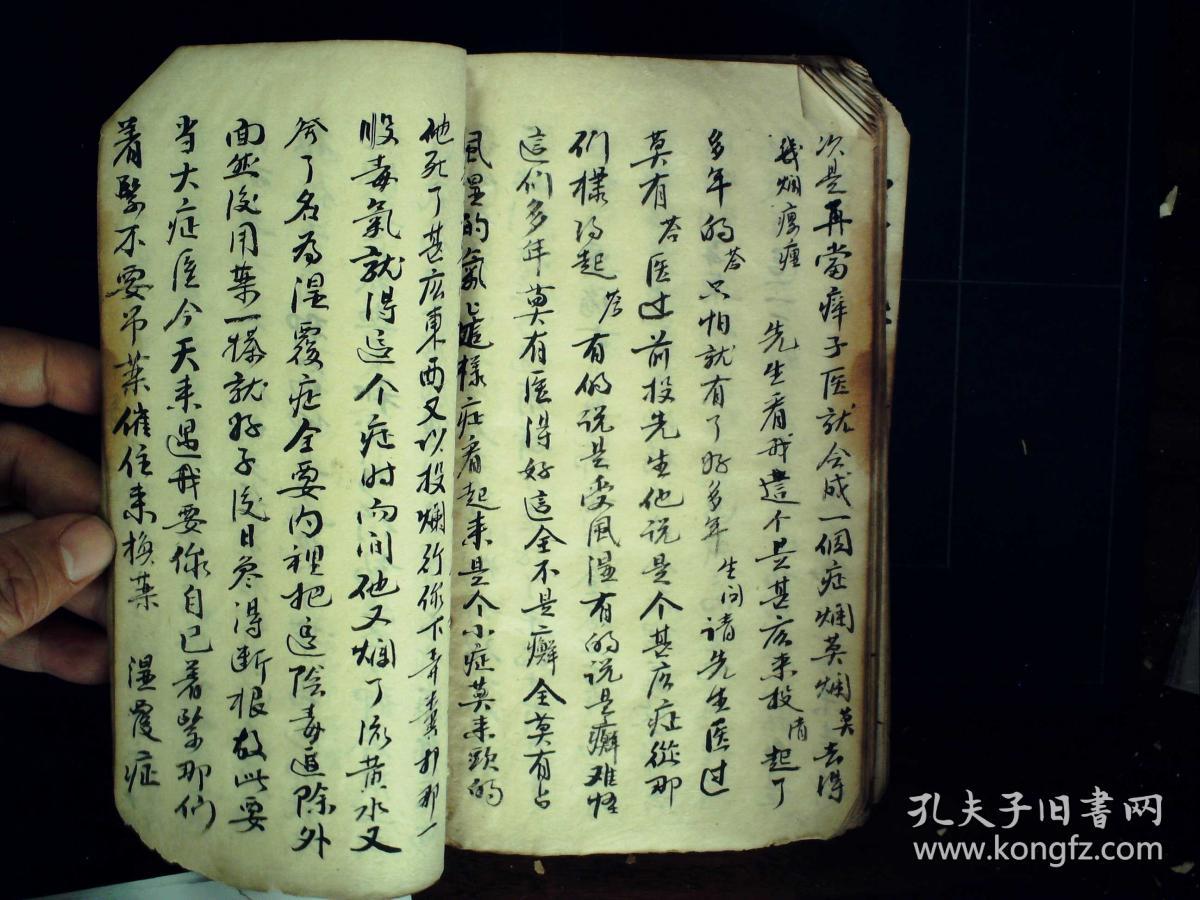 次是再當痒子医就会成一個症烟莫烟莫去得
先生看我這个是甚広来投清起了
多年的答只怕就有了好多年生问请先生医过
莫有答医过前投先生他说是个甚広症從那
们樣得起答有的说是受風濕有的说是癬难怪
這们多年莫有医得好這全不是癬全莫有占
風濕的氣这樣症看起来是个小症莫来頭的
他死了甚広東西又以投爛行你下弄粪打那一
股毒氣就得這个症时向间他又爛了流黄水又
癸了名為濕覆症全要内裡把這陰毒追除外
面然後用藥一搽就好了後日免得断根故此要
当大症医今天来遇我要你自已着緊那们
着緊不要吊藥催住来换藥 濕覆症
孔夫子旧書网
www.kongfz.com